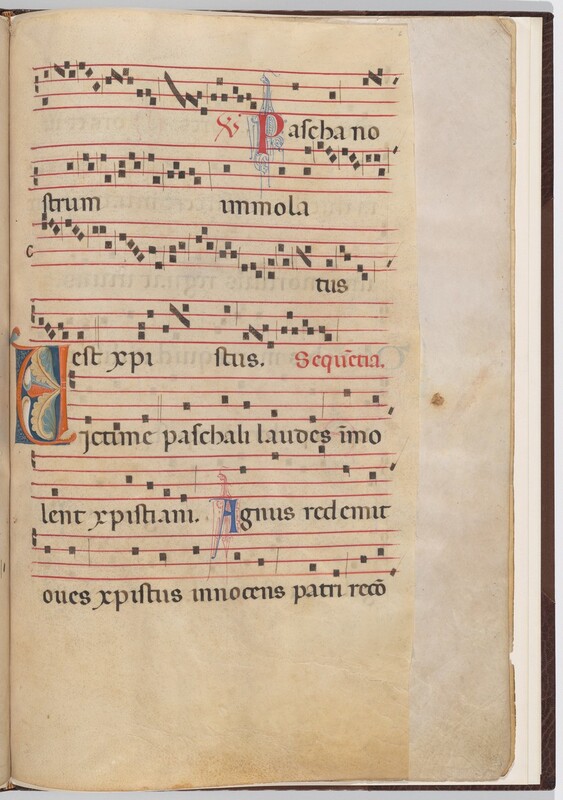 V Pascha no
strum immola
tus
est xpi stus. Sequētia.
Victime paschali laudes īmo
lent xpistiani. Agnus redemit
oues xpistus innocens patri recō